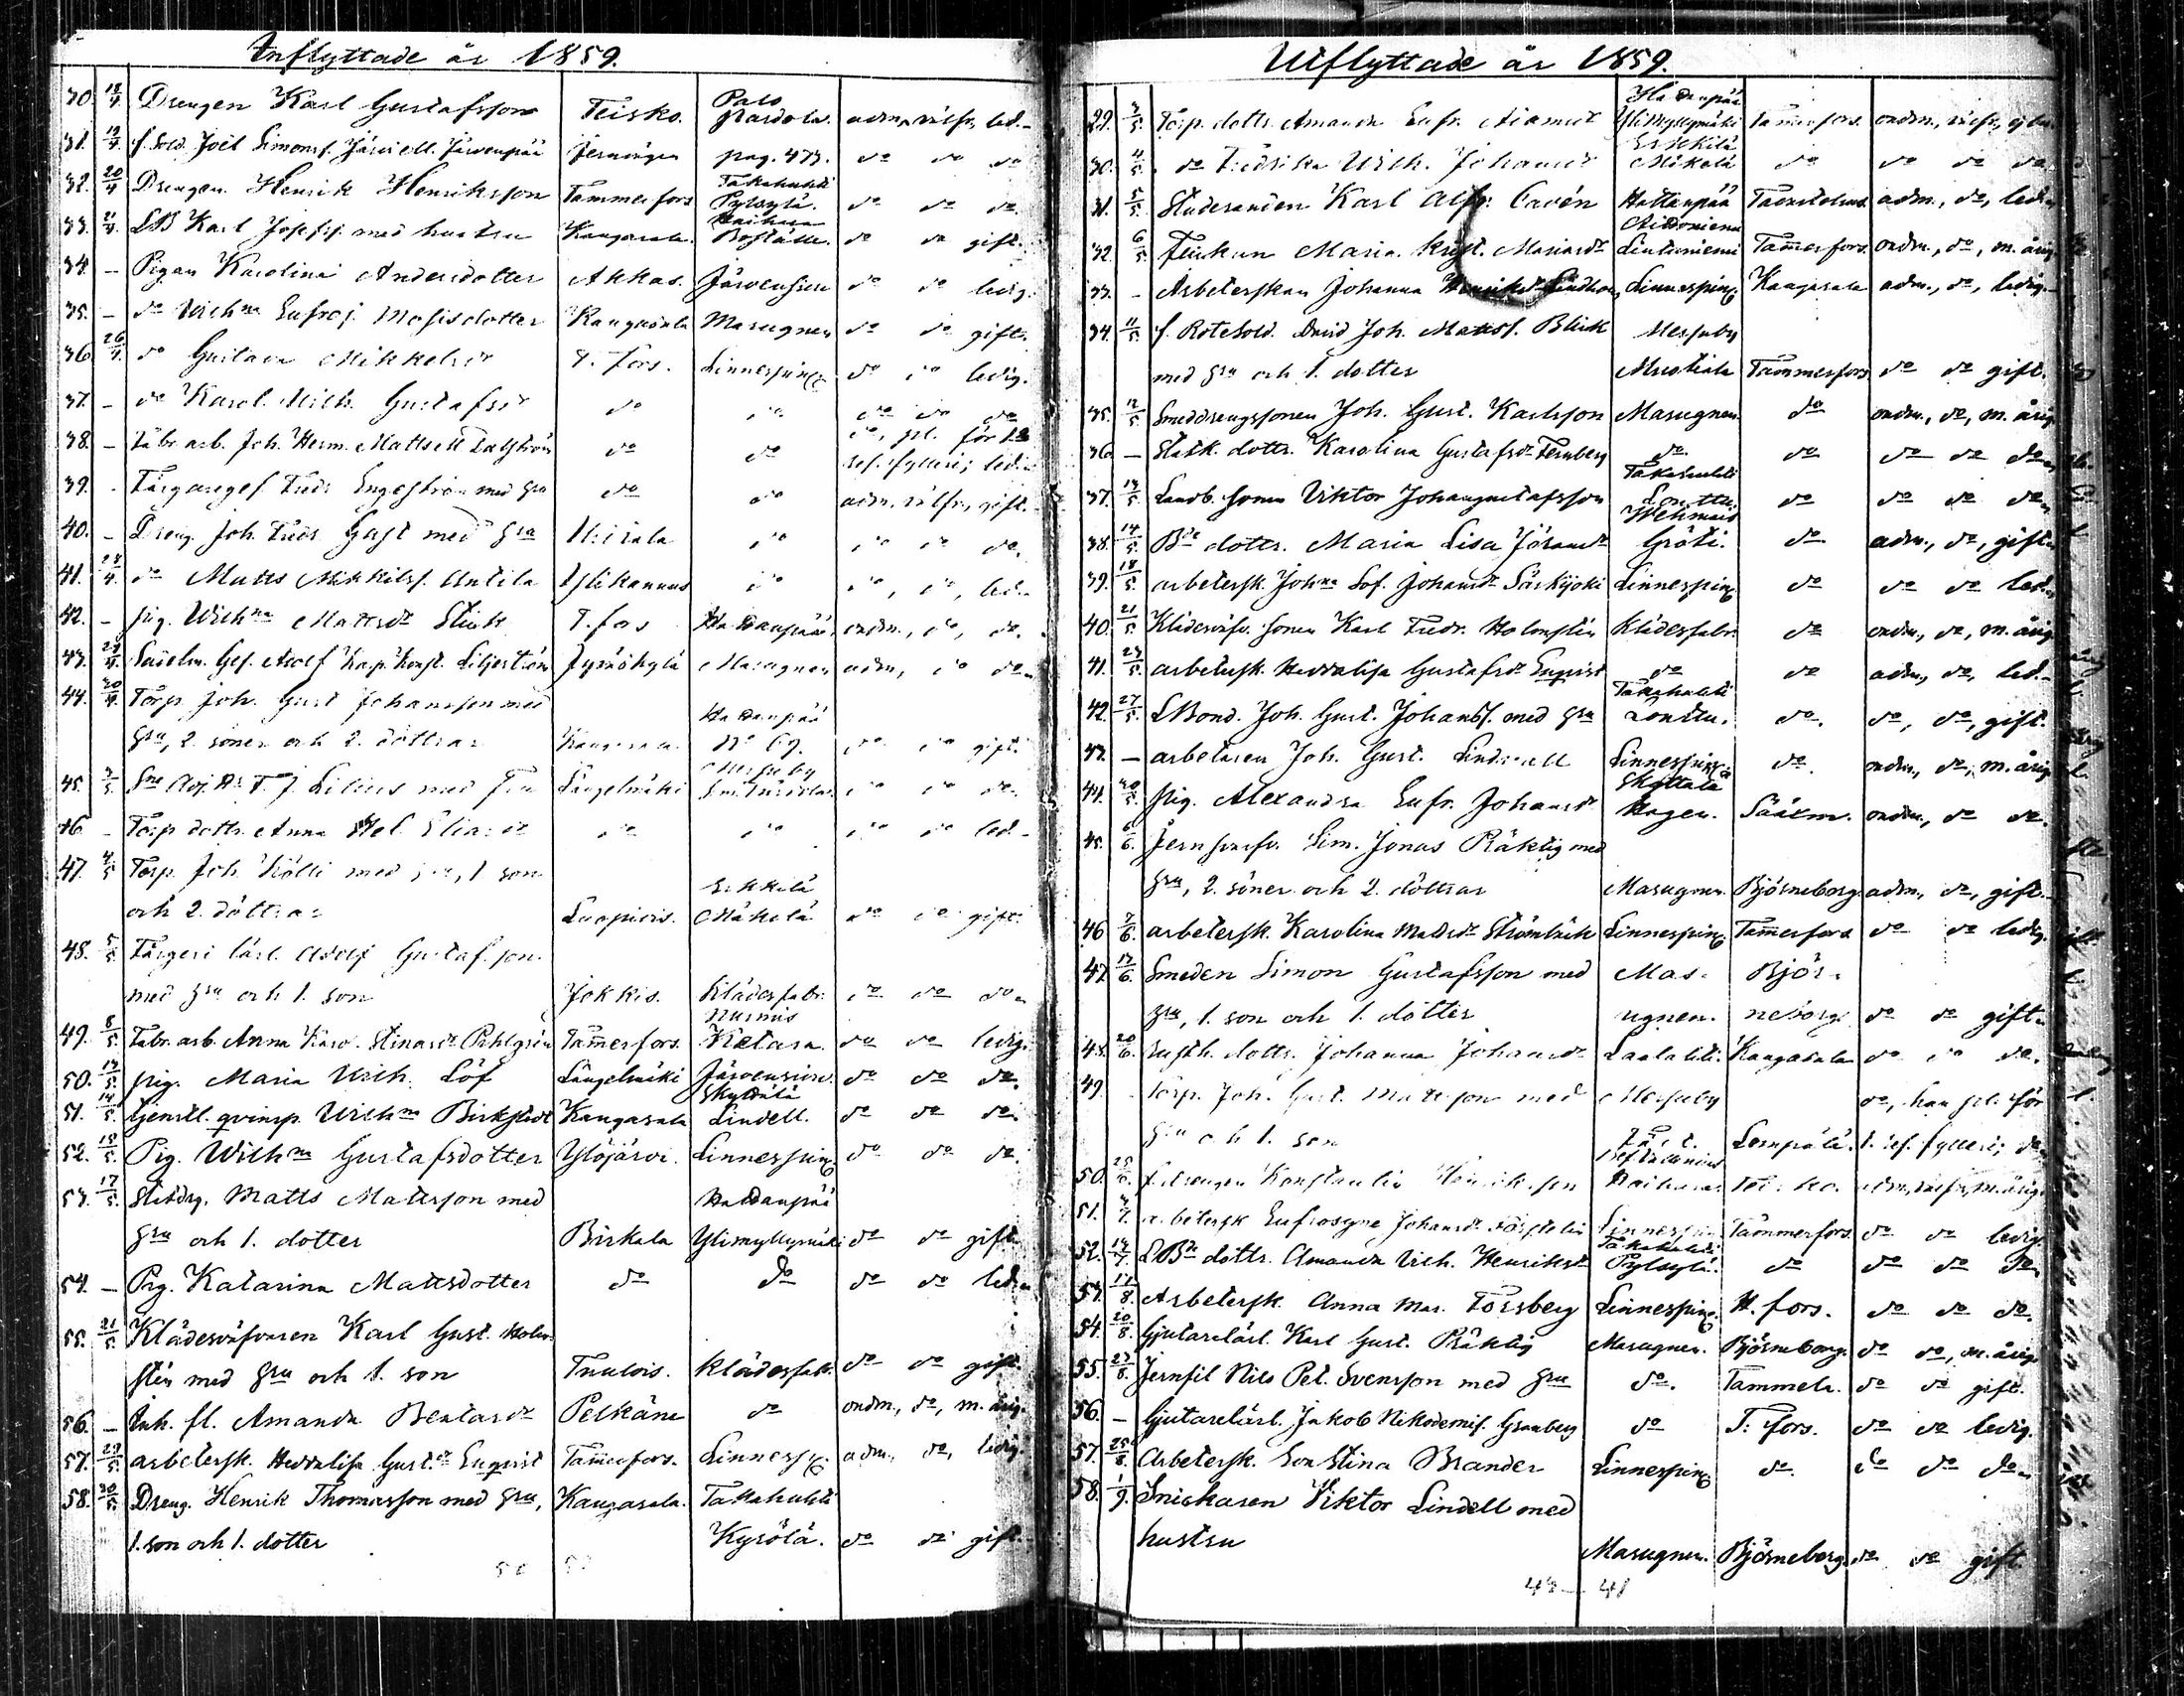 Inflyttade år 1859.
30. 18/4. Drengen Karl Gustafsson Teisko. Palo adm, välfr, led.
31. 19/4. f. Sold. Joël Simonsf. Järvenpää pag. 473. do do do
32. 20/4 Drengen Henrik Henriksson Tammerfors Takahuhti Pylsylä. do do do.
33. 21/4. LB Karl Josefsf. med hustru Kangasala. Haihara Boställe. do do gift.
34. – Pigan Karolina Andersdotter Akkas. Järvensivu do do ledig.
35. – do Wilhna Eufros. Mosisdotter Kangasala Masugnen do do gift.
36. 26/4. do Gustava Mikkelsdr T. fors. Linnespinn. do do ledig.
37. – do Karol. Wilh. Gustafsdr do do do do do
38. – Fabr. arb. Joh. Herm. Mattss do do do, pl. för 1 ref. fylleri; led.
39. Färgaregef. Fredr. Engeström med hru do do adm. välfr, gift.
40. – Dreng. Joh. Fredr. Gast med hru do do do do.
41. 28/4. do Matts Mikkelsf. Antila Ylikannus do do, do, led.
42. – pig. Wilhna Mattsdr Stick T. fors Hatanpää ondm., do, do.
43. 28/4. Gef. Adolf Liljeström Jyväskylä Masugnen adm, do do
44. 30/4. Torp. Joh. Gust Johansson med
hru, 2. söner och 2. döttrar Kangasala Hatanpää No 69. do do gift.
45. 3/5. med Fru Längelmäki Messuby do do do
46 – Torp. dottr. Anna Hel. Eliasdr do do do do led.
47. 4/5 Torp. Joh. Kölli med hru, 1 son
och 2. döttrar Luopiois. Erkkilä Mäkelä do do gift.
48. 5/5. Färgeri lärl. Adolf Gustafsson
med hru och 1. son Jokkis. Klädesfabr. do do do
49. 8/5. Fabr. arb. Anna Karo. Stinasdr Pihlgrén Tamerfors. Nurmis Ketara. do do ledig.
50. 12/5. pig. Maria Wilh. Löf Längelmäki Järvensivu. do do do.
51. 14/5. tjenstl. qvinsp. Wilhna Birkstedt Kangasala Skyttälä Lindell. do do do.
52. 15/5. Pig. Wilhna Gustafsdotter Ylöjärvi. Linnespinn. do do do.
53. 17/5. Statdrg. Matts Mattsson med
hru och 1. dotter Birkala Hatanpää Ylimyllymäki do do gift
54. – Pig. Katarina Mattsdotter do do do do led.
55. 21/5 Klädesväfvaren Karl Gust. Holm-
stén med hru och 1. son Tuulois. Klädesfabr. do do gift.
56. – Inh. fl. Amanda Bentasdr Pelkäne do ondm., do, m. årig.
57. 23/5. arbetersk. Heddalisa Gust.dr Enqvist Tamerfors. Linnespinn. adm., do, ledig.
58. 30/5 Dreng. Henrik Thomasson med hru, Kangasala. Takahuhti
1. son och 1. dotter Kyrölä. do do gift.
Utflyttade år 1859.
29. 3/5. Torp. dottr. Amanda Eufr. Adamsdr Hatanpää Ylimyllymäki Tamerfors. ondm., välfr.,
30. 4/5. do Fredrika Wilh. Johansdr Erkkilä Mäkelä do do do do
31. 5/5. Studeranden Karl Alfr. Cavén Hattanpää Tavastehus adm., do, led.
32. 6/5. Flickan Maria Krist. Mariasdr Lintuniemi Tamerfors. ondm., do, m. årig
33. – Arbeterskan Johanna Linnespinn. Kangasala adm., do, ledig.
34. 11/5. f. RoteSold. David Joh. Mattsf. Blick Messuby
med hru och 1. dotter Tammerfors do do gift.
35. 12/5. Smeddrengssonen Joh. Gust. Karlsson Masugnen. do ondm., do, m. årig
36. – Statk. dottr. Karolina Gustafsdr Fernberg do do do do do
37. 13/5. Landb. sonen Viktor Johangustafsson Takahuhti Lonttu. do do do do
38. 14/5. Bde dottr. Maria Lisa Jöransdr Gröti. do adm., do, gift
39. 18/5. arbetersk. Johna Sof. Johansdr Särkijoki Linnespinn. do do do led.
40. 21/5. Klädesväfv. sonen Karl Fredr. Holmstén Klädesfabr. do ondm., do, m. årig
41. 23/5. arbetersk. Heddalisa Gustafsdr Enqvist do do adm., do, led.
42. 27/5. LBond. Joh. Gust. Johansf. med hru Takahuhti Lonttu. do. do, do, gift.
43. – arbetaren Joh. Gust. Lindvall Linnespinn. do. ondm., do, m. årig
44. 30/5. pig. Alexandra Eufr. Johansdr Skyttälä Hagen. Sääxm. ondm., do do.
45. 6/6. Jernsvarfv. Sim. Jonas Präktig med
hru, 2. söner och 2. döttrar Masugnen. Björneborg adm., do, gift.
46 7/6. arbetersk. Karolina Mattsdr Strömbäck Linnespinn. Tamerfors do do ledig.
47. 17/6. Smeden Simon Gustafsson med Mas- Björ-
hru, 1. son och 1. dotter ugnen. neborg. do do gift.
48. 20/6. dottr. Johanna Johansdr Laalahti. Kangasala do do do.
49. Torp. Joh. Gust. Mattsson med Messuby do, han pl. för
hru och 1. son Lempälä. 1. ref. fylleri; do
50. 25/6. f. drengen Konstantin Henriksson Haihara. Teisko. adm., välfr, m. årig
51. 4/7. arbetersk Eufrosyne Johansdr Linnespinn Tammerfors. do do ledig.
52. 14/7. LBde dottr. Amanda Wilh. Henriksdr Takahuhti Pylsylä. do do do do
53. 17/8. Arbetersk. Anna Mar. Forsberg Linnespinn. H. fors. do do do.
54. 20/8. Gjutarelärl. Karl Gust. Präktig Masugnen. Björneborg. do do, m. årig.
55. 23/8. Jernfil Nils Pet. Svensson med hru do. Tammela. do do gift.
56. – Gjutarelärl. Jakob Nikodemif. Granberg do T. fors. do do ledig.
57. 25/8. Arbetersk. Eva Stina Brander Linnespinn do. do do do.
58. 1/9. Snickaren Viktor Lindell med
hustru Masugnen. Björneborg. do do gift